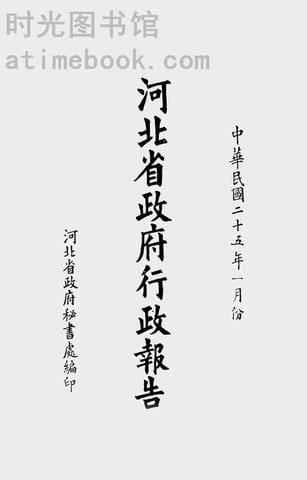 时光图书馆
atimebook.com
中華民國二十五年一月份
河北省政府行政報告
河北省政府秘書處編印